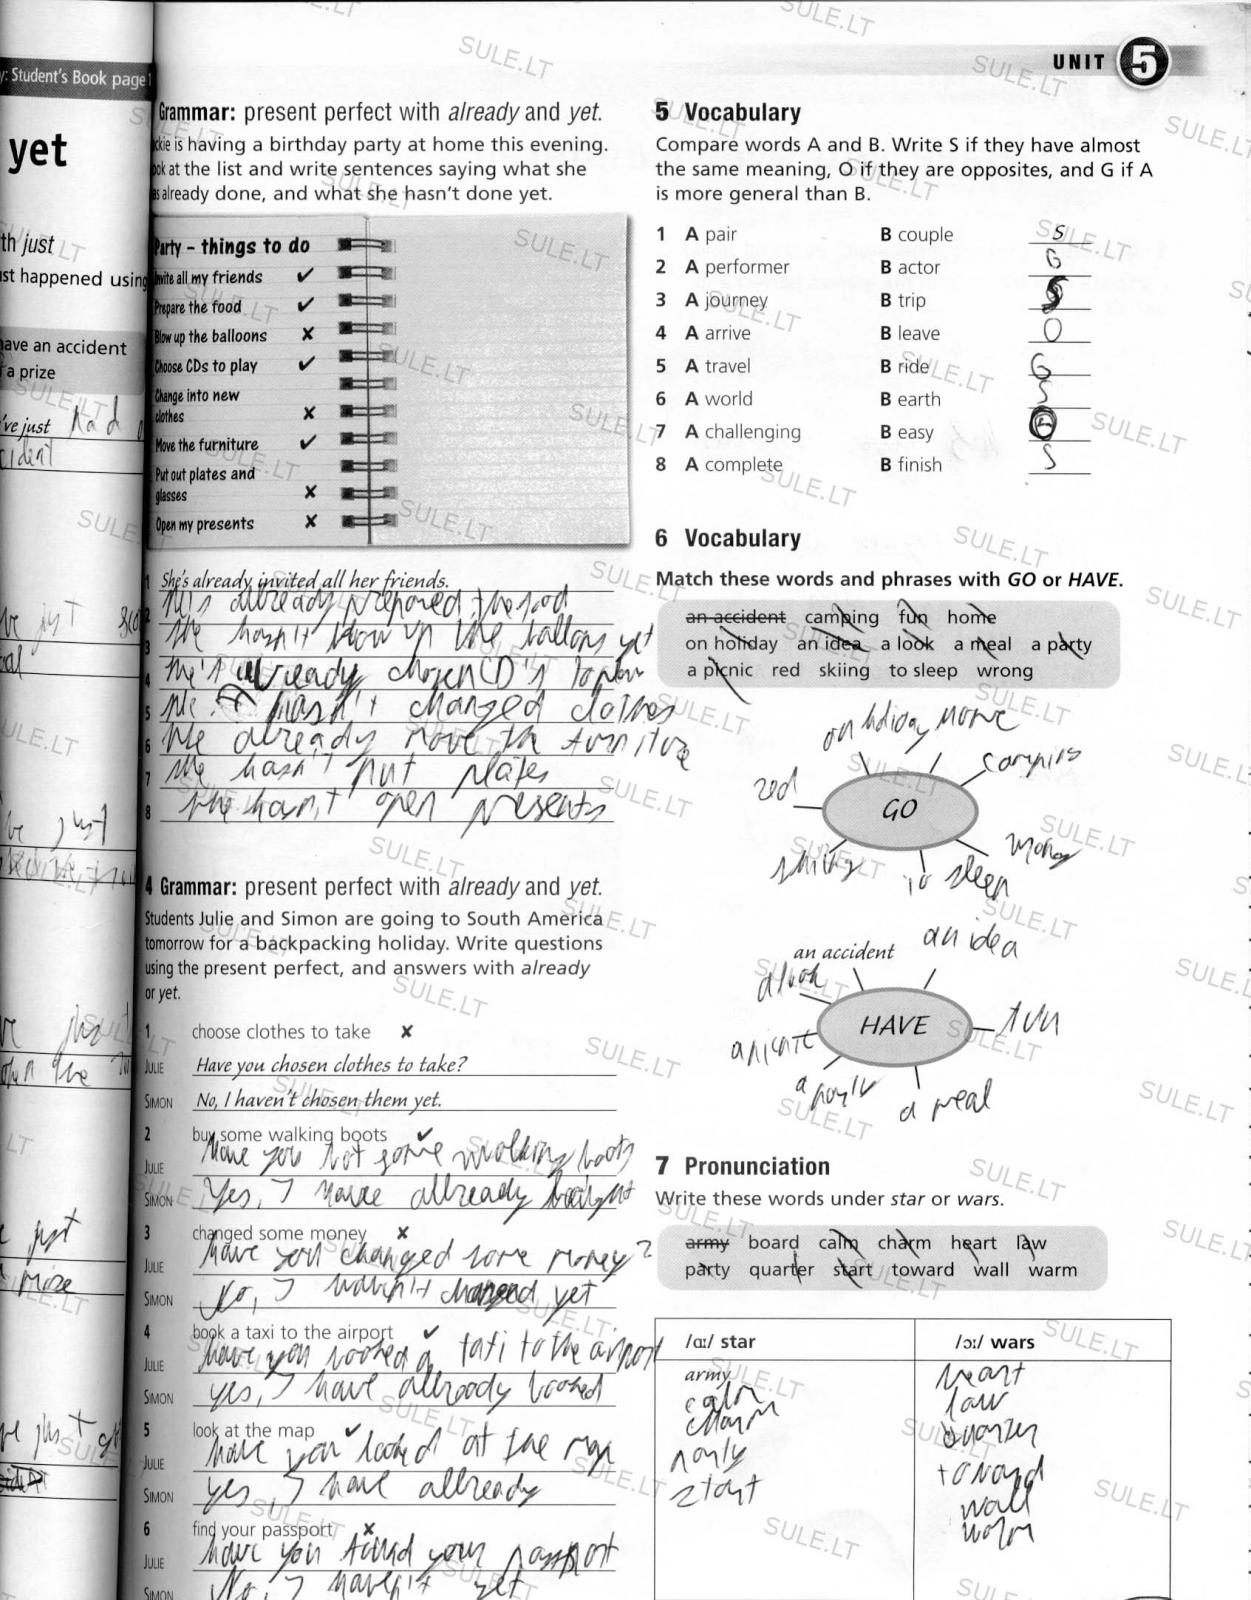 y: Student's Book page 1
yet
th just
st happened using
have an accident
a prize
've just had
cident
UNIT 5
Grammar: present perfect with already and yet.
ckie is having a birthday party at home this evening.
ok at the list and write sentences saying what she
as already done, and what she hasn't done yet.
Party – things to do
Invite all my friends ✔
Prepare the food ✔
Blow up the balloons ✘
Choose CDs to play ✔
Change into new
clothes ✘
Move the furniture ✔
Put out plates and
glasses ✘
Open my presents ✘
1 She's already invited all her friends.
2 allready prepared the food
3 She hasn't blow up the ballons yet
4 allready chosen CD's to
5 hasn't changed clothes
6 She already move the furniture
7 She hasn't put plates
8 She hasn't open presents
4 Grammar: present perfect with already and yet.
Students Julie and Simon are going to South America
tomorrow for a backpacking holiday. Write questions
using the present perfect, and answers with already
or yet.
1 choose clothes to take ✘
JULIE Have you chosen clothes to take?
SIMON No, I haven't chosen them yet.
2 buy some walking boots ✔
JULIE Have you some walking boots
SIMON Yes, I have allready bought
3 changed some money ✘
JULIE have you changed some money?
SIMON No, I haven't changed yet
4 book a taxi to the airport ✔
JULIE have you booked a taxi to the airport
SIMON yes, I have allready booked
5 look at the map ✔
JULIE have you looked at the map
SIMON yes, I have allready
6 find your passport ✘
JULIE have you found your passport
SIMON No, I haven't yet
5 Vocabulary
Compare words A and B. Write S if they have almost
the same meaning, O if they are opposites, and G if A
is more general than B.
1 A pair B couple S
2 A performer B actor G
3 A journey B trip
4 A arrive B leave O
5 A travel B ride G
6 A world B earth S
7 A challenging B easy
8 A complete B finish S
6 Vocabulary
Match these words and phrases with GO or HAVE.
an accident camping fun home
on holiday an idea a look a meal a party
a picnic red skiing to sleep wrong
on holiday home
camping
red
GO
skiing to sleep wrong
an accident an idea
a look
HAVE fun
a picnic
a party a meal
7 Pronunciation
Write these words under star or wars.
army board calm charm heart law
party quarter start toward wall warm
/ɑː/ star /ɔː/ wars
army heart
calm law
charm quarter
party toward
start wall
warm
SULE.LT